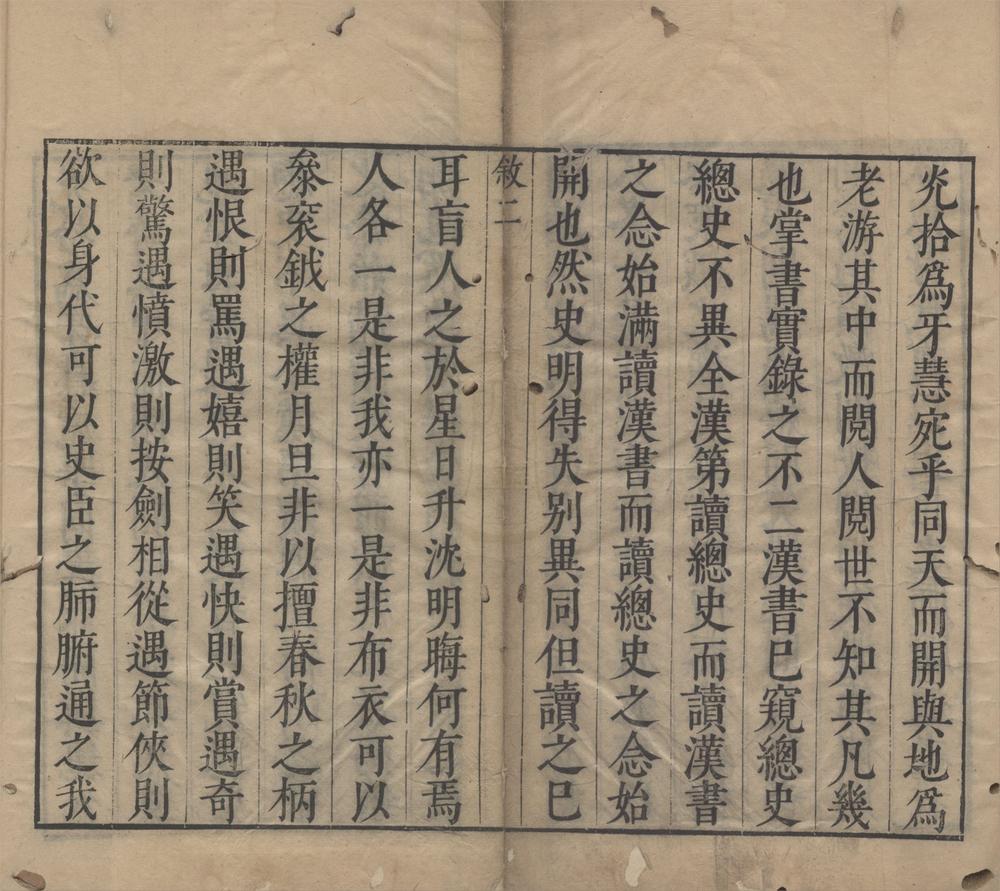 炎拾爲牙慧宛乎同天而開與地爲
老游其中而閱人閱世不知其凡幾
也掌書實錄之不二漢書已窺總史
總史不異全漢第讀總史而讀漢書
之念始滿讀漢書而讀總史之念始
開也然史明得失別異同但讀之已
敘二
耳盲人之於星日升沈明晦何有焉
人各一是非我亦一是非布衣可以
叅衮鉞之權月旦非以擅春秋之柄
遇恨則罵遇嬉則笑遇快則賞遇奇
則驚遇憤激則按劍相從遇節俠則
欲以身代可以史臣之肺腑通之我